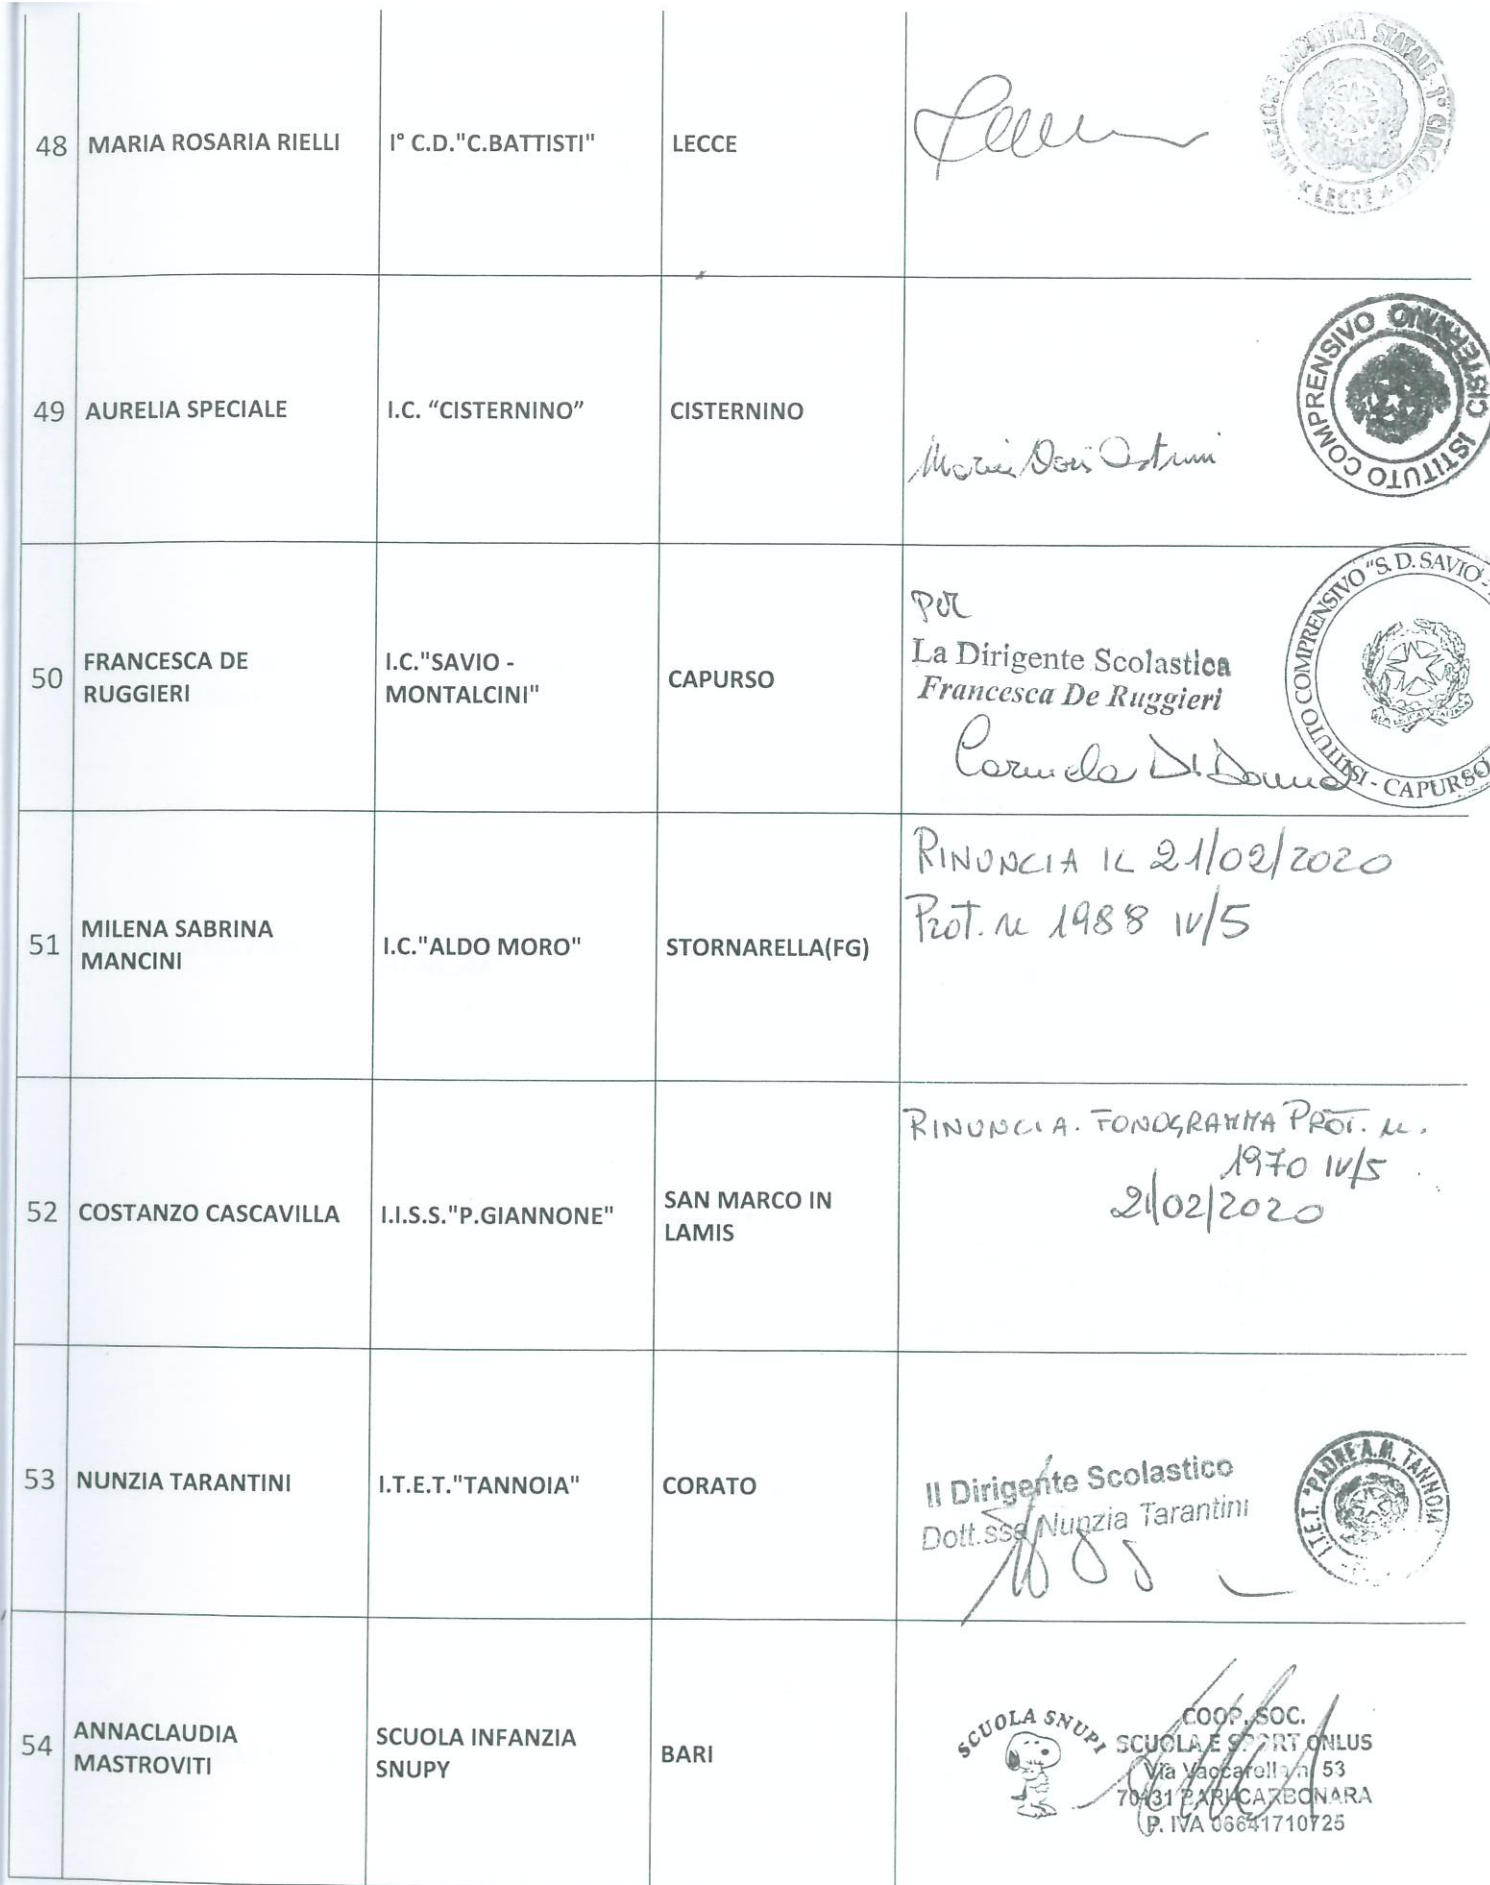 48 MARIA ROSARIA RIELLI I° C.D."C.BATTISTI" LECCE
DIREZIONE DIDATTICA STATALE 1° CIRCOLO * LECCE *
49 AURELIA SPECIALE I.C. “CISTERNINO” CISTERNINO
Maria Doris
ISTITUTO COMPRENSIVO CISTERNINO
50 FRANCESCA DE
RUGGIERI
I.C."SAVIO -
MONTALCINI"
CAPURSO
per
La Dirigente Scolastica
Francesca De Ruggieri
Carmela Di Donna
ISTITUTO COMPRENSIVO "S. D. SAVIO -
- CAPURSO
51 MILENA SABRINA
MANCINI
I.C."ALDO MORO"
STORNARELLA(FG)
RINUNCIA IL 21/02/2020
Prot. n 1988 IV/5
52 COSTANZO CASCAVILLA I.I.S.S."P.GIANNONE"
SAN MARCO IN
LAMIS
RINUNCIA. FONOGRAMMA PROT. n.
1970 IV/5
21/02/2020
53 NUNZIA TARANTINI I.T.E.T."TANNOIA" CORATO
Il Dirigente Scolastico
Dott.ssa Nunzia Tarantini
I.T.E.T. "PADRE A.M. TANNOIA"
54 ANNACLAUDIA
MASTROVITI
SCUOLA INFANZIA
SNUPY
BARI
SCUOLA SNUPI
COOP. SOC.
SCUOLA E SPORT ONLUS
Via Vaccarella n. 53
70131 BARI-CARBONARA
P. IVA 06641710725